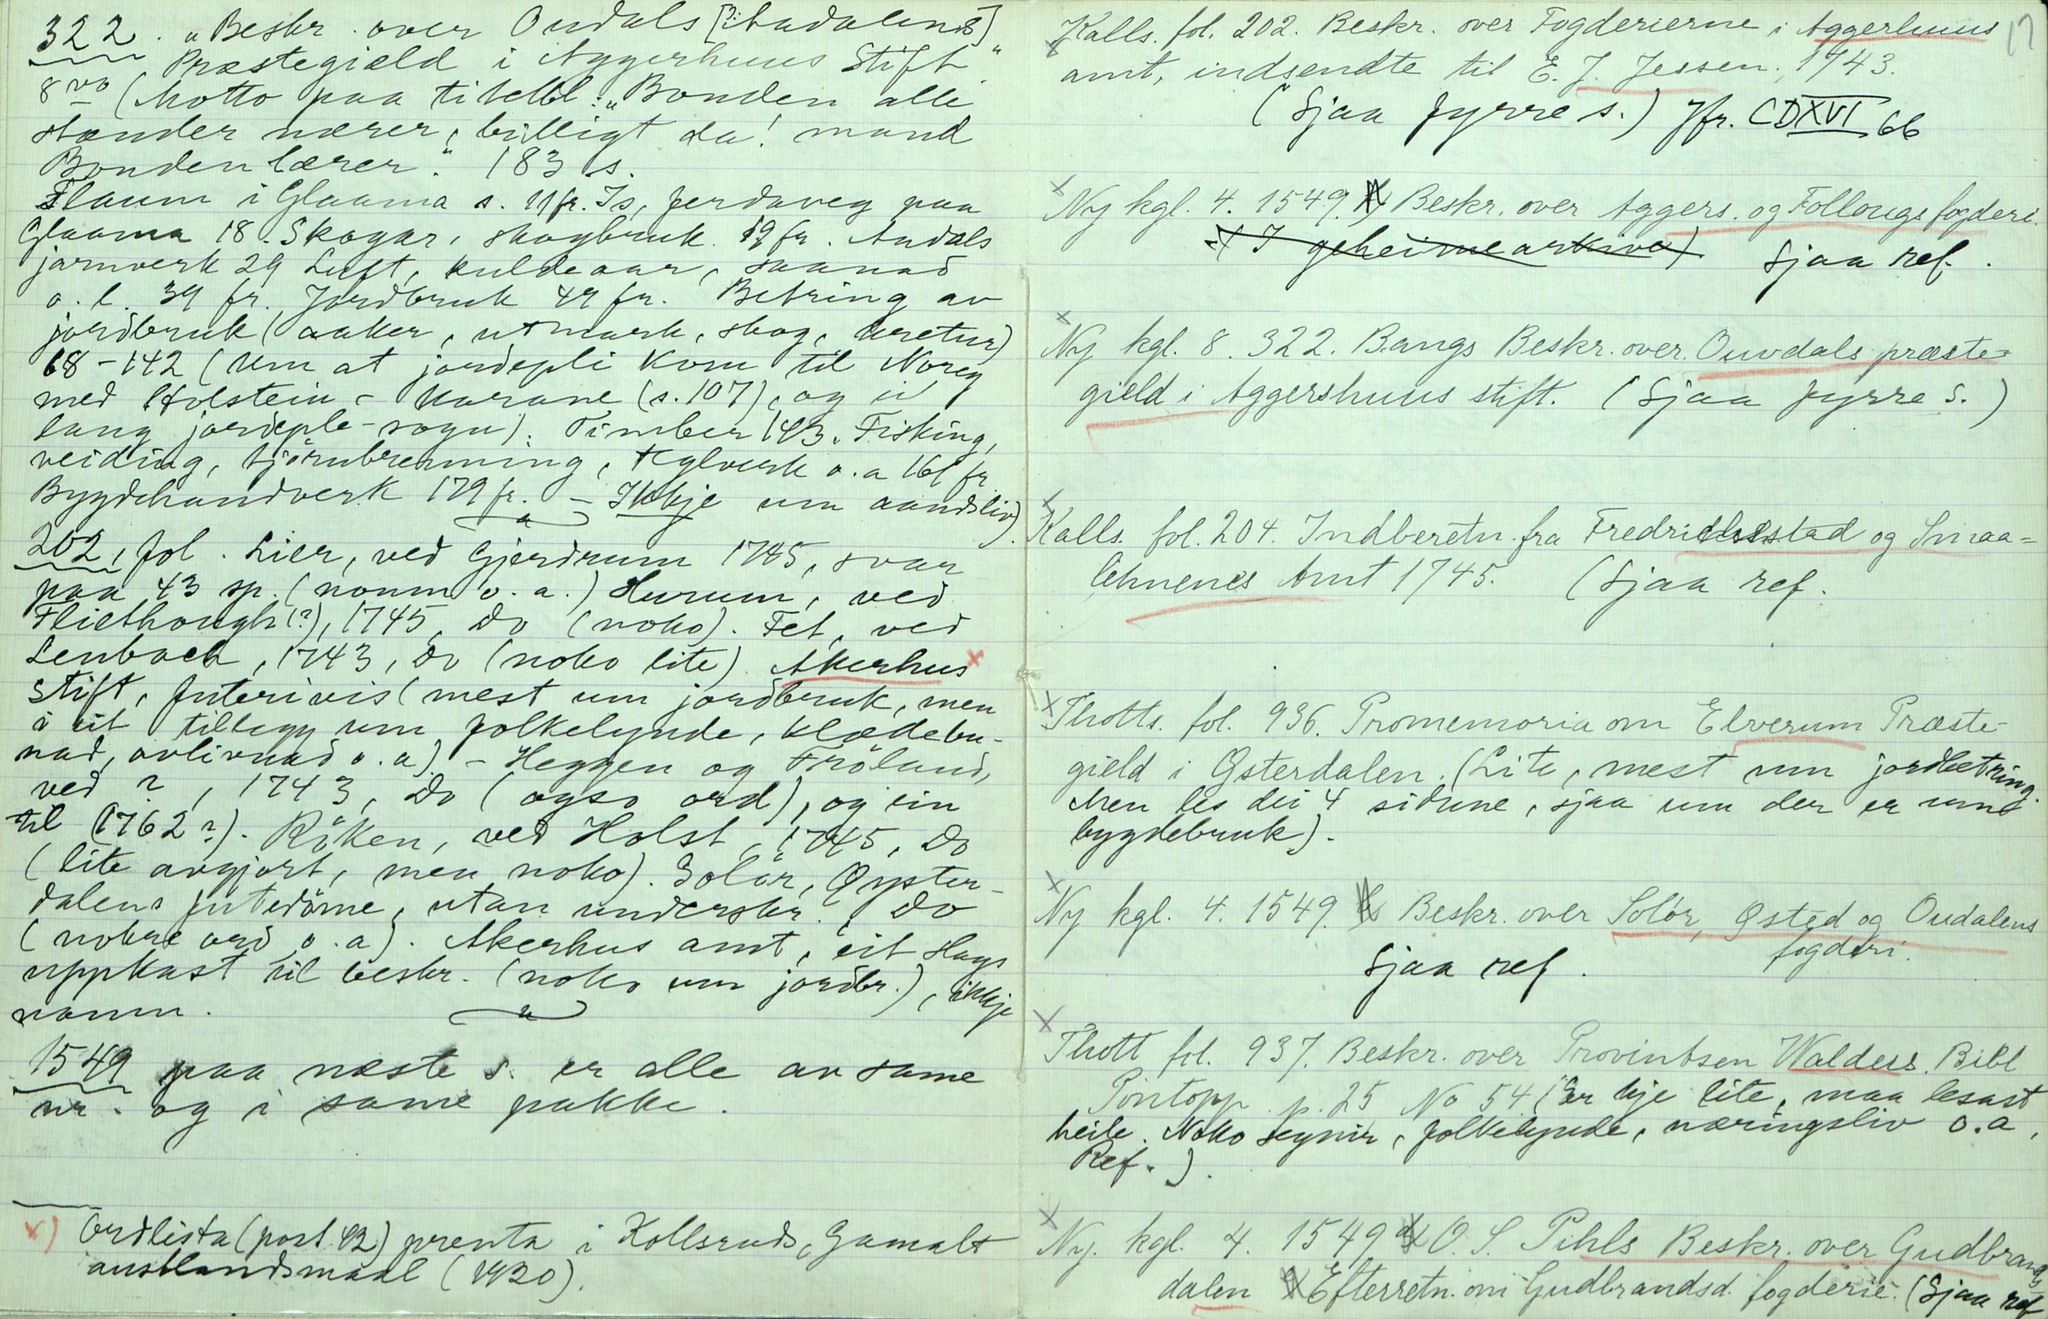 322. „Beskr. over Oudals [ɔ: Aadalens]
Præstegiæld i Aggerhuus Stift“
8vo (Motto paa titelbl. „Bonden alle
stænder nærer, billigt da! mand
Bonden lærer.“ 183 s.
Flaum i Glaama s. 11 fr. Is, ferdaveg paa
Glaama 18. Skogar, skogbruk 19 fr. Audals
jarnverk 29 Luft, kuldeaar, saanad
o.l. 39 fr. Jordbruk 49 fr. Betring av
jordbruk (aaker, utmark, skog, kretur)
68-142 (um at jordepli kom til Noreg
med Holstein- karane (s. 107), og ei
lang jordeple-sogu). Timber 143. Fisking,
veiding, tjörubrenning, teglverk o.a 161 fr.
Bygdehandverk 179 fr. – Ikkje um aandsliv).
202, fol. Lier, ved Gjerdrum 1745, svar
paa 43 sp. (namn o.a.) Hurum, ved
Fliethough (?), 1745, do (noko). Fet, ved
Lenbach, 1743, do (noko lite). Akerhus x
stift, Juterivis (mest um jordbruk, men
i eit tillegg um folkelynde, klædebu-
nad, avlivnad o.a) – Heggen og Fröland,
ved ?, 1743, do (ogso ord), og ein
til (1762?). Röken, ved Holst, 1745, do
(lite avgjort, men noko). Solör, Øyster-
dalens futedöme, utan underskr. do
(nokre ord o.a). Akerhus amt, eit slags
uppkast til beskr. (noko um jordbr.), ikkje
namn.
1549 paa næste s. er alle av same
nr. og i same pakke.
x) Ordlista (post 42) prenta i Kolsrud, Gamalt
austlandsmaal (1920).
17
Kalls. fol. 202. Beskr. over Fogderierne i Aggerhuus
amt, indsendte til E. J. Jessen. 1743.
(Sjaa fyrre s.) Jfr. CDXVI 66
Ny kgl. 4. 1549. Beskr. over Aggers. og Follougs fogderi.
(I geheimearkivar) Sjaa ref.
Ny kgl. 8. 322. Bangs Beskr. over Ouvdals præste-
gield i Aggershuus stift. (Sjaa fyrre s.)
Kalls. fol. 204. Indberetn. fra Fredrichsstad og Smaa-
lehnenes Amt 1745. (Sjaa ref.
Thotts. fol. 936. Promemoria om Elverum Præste-
gield i Østerdalen. (Lite, mest um jordbetring.
Men les dei 4 sidune, sjaa um der er umd
bygdebruk).
Ny kgl. 4. 1549. Beskr. over Solör, Østed og Oudalens
fogderi.
Sjaa ref.
Thott fol. 937. Beskr. over Provintsen Walders. Bibl
Pontopp. p. 25 No 54. (Er kje lite, maa lesast
heile. Noko segnir, folkelynde, næringsliv o.a.
Ref.).
Ny. kgl. 4. 1549 d O. S. Pihls Beskr. over Gudbrands
dalen Efterretn. om Gudbrandsd. fogderie. (Sjaa ref